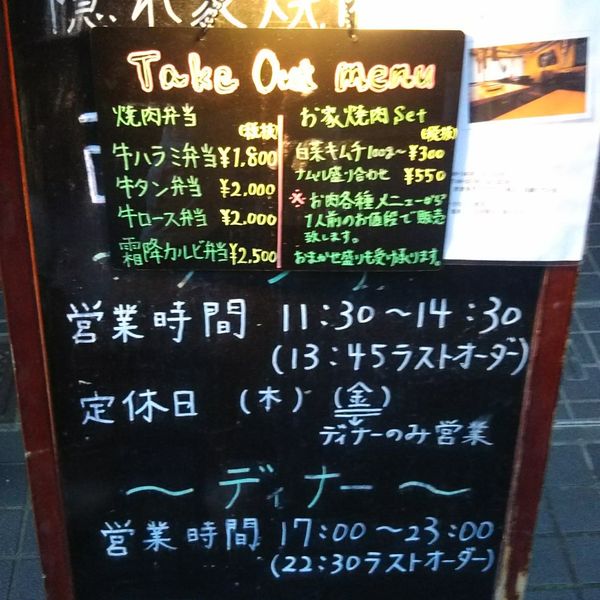 隠れ家焼肉
Take Out menu
焼肉弁当
(税抜)
牛ハラミ弁当 ¥1.800
牛タン弁当 ¥2.000
牛ロース弁当 ¥2.000
霜降カルビ弁当 ¥2,500
お家焼肉Set
(税抜)
白菜キムチ100g~ ¥300
ナムル盛り合わせ ¥550
※お肉各種メニューから
1人前のお値段で販売
致します。
おまかせ盛りも受け承ります。
営業時間 11:30～14:30
(13:45ラストオーダー)
定休日 (木) (金)
ディナーのみ営業
～ディナー～
営業時間 17:00～23:00
(22:30ラストオーダー)